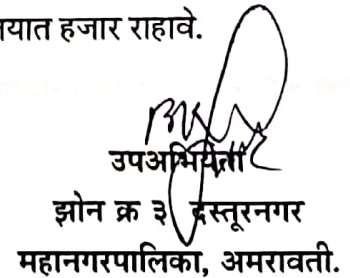 यात हजार राहावे.
उपअभियंता
झोन क्र ३ दस्तूरनगर
महानगरपालिका, अमरावती.